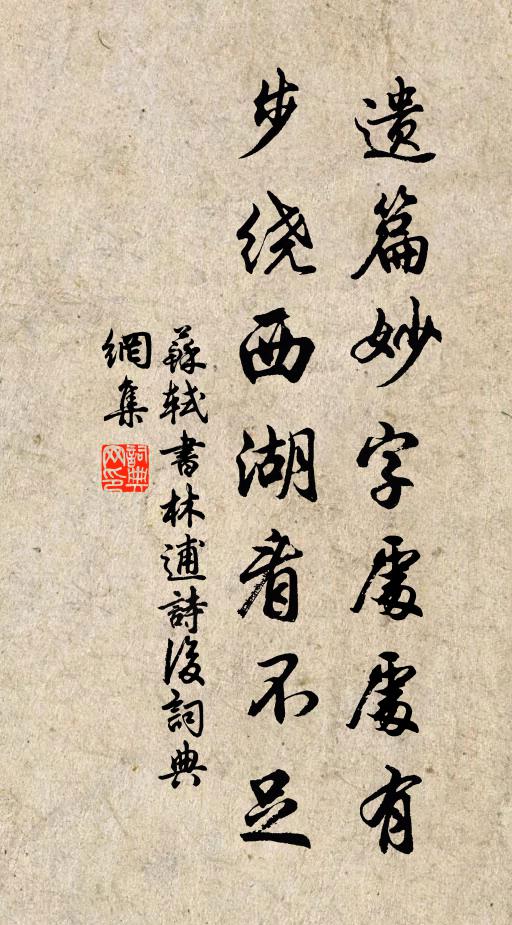 遗篇妙字處處有
步绕西湖看不足
蘇軾書林逋詩後詞典
網集
詞典
网印